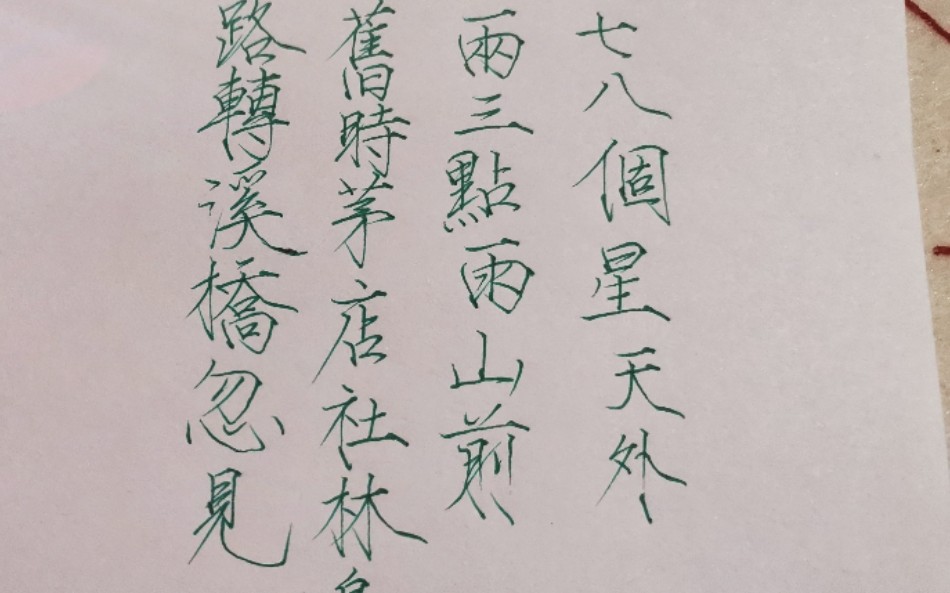 七八個星天外
兩三點雨山前
舊時茅店社林
路轉溪橋忽見